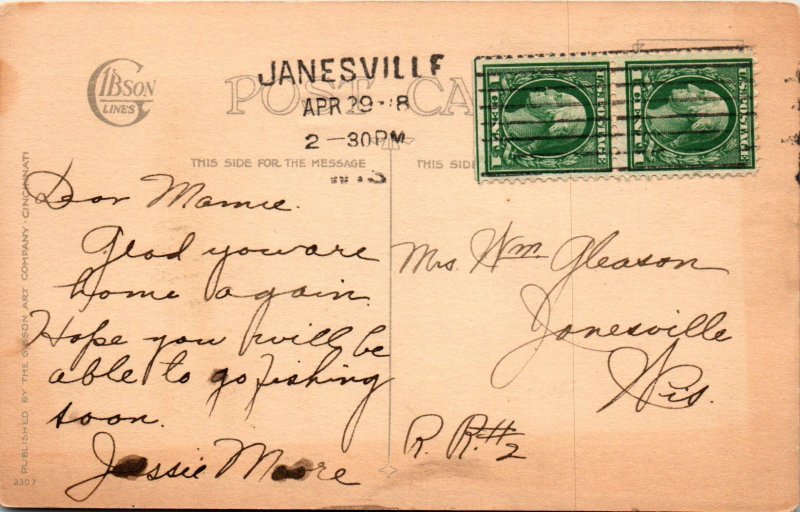 GIBSON
LINES
JANESVILLE
APR 29 18
2-30PM
WIS
POST CA
U.S. POSTAGE
1 CENT 1
U.S. POSTAGE
1 CENT 1
THIS SIDE FOR THE MESSAGE
THIS SIDE
Dear Mamie.
Glad you are
home again.
Hope you will be
able to go fishing
soon.
Jessie Moore
Mrs. Wm Gleason
Janesville
Wis.
R. R. #2
PUBLISHED BY THE GIBSON ART COMPANY - CINCINNATI
2307